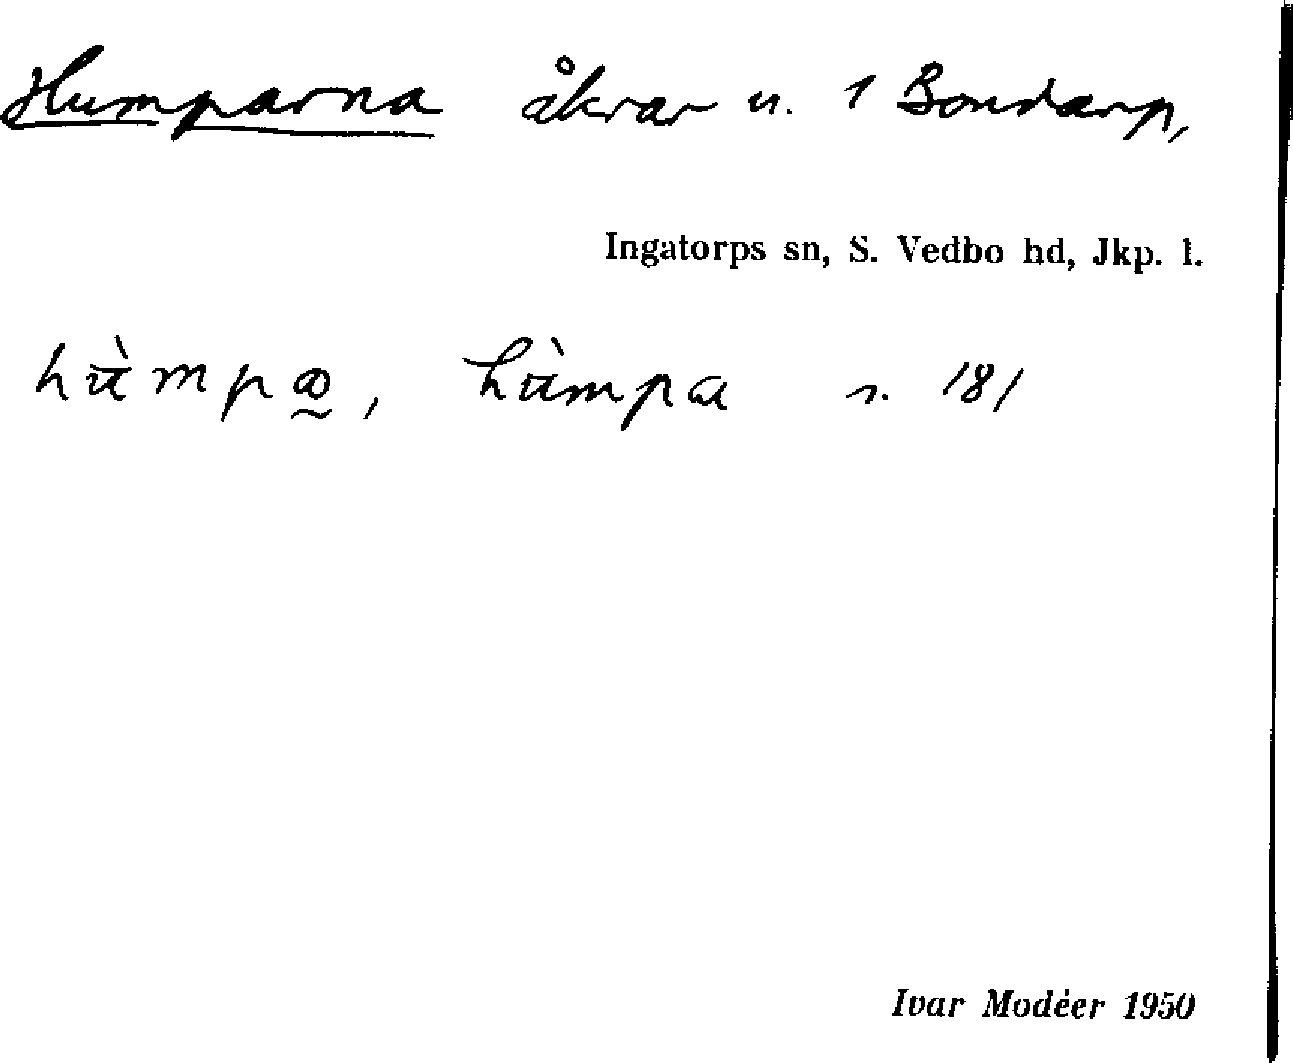 Humparna åkrar u. 1 Bondarp,
Ingatorps sn, S. Vedbo hd, Jkp. l.
s. 181
Ivar Modéer 1950